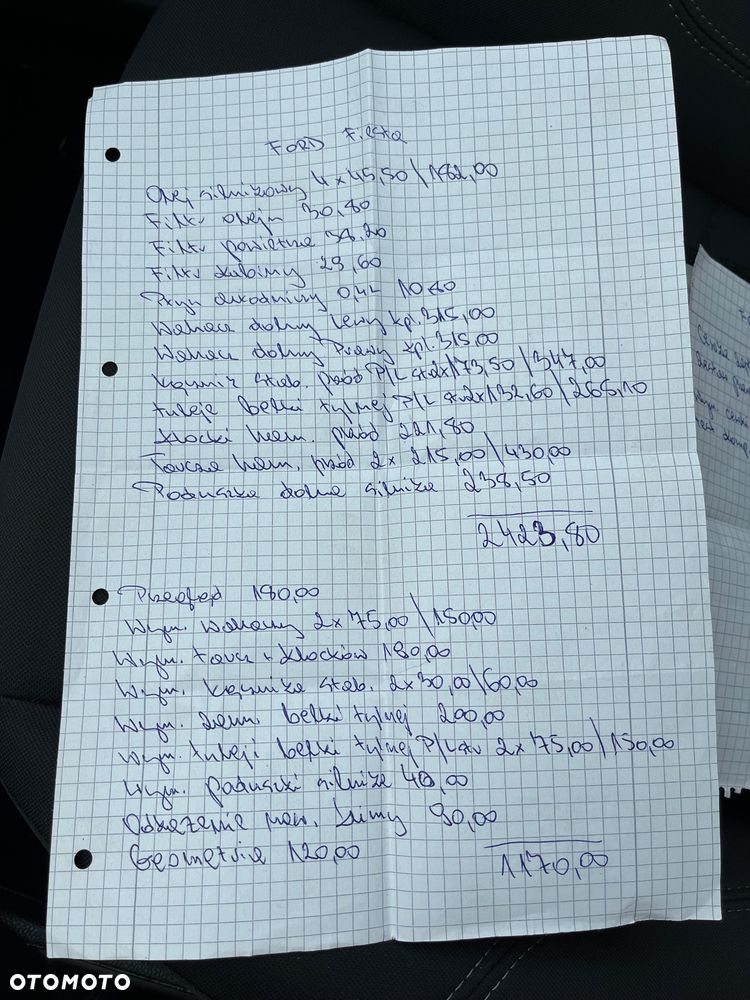 FORD Fiesta
Olej silnikowy 4 x 45,50 \ 182,00
Filtr oleju 30,80
Filtr powietrza 38,20
Filtr kabiny 29,60
Płyn chłodniczy 0,4L 10,40
Wahacz dolny Lewy kpl. 315,00
Wahacz dolny Prawy kpl. 315,00
Łącznik stab. przód P/L szt 2x173,50 \ 347,00
tuleje belki tylnej P/L szt 2x132,60 \ 265,10
klocki ham. przód 221,80
Tarcza ham. przód 2 x 215,00 \ 430,00
Poduszka dolna silnika 238,50
2423,80
Przegląd 180,00
Wym. wahaczy 2x 75,00 \ 150,00
Wym. tarcz + klocków 180,00
Wym. łącznika stab. 2x30,00 \ 60,00
Wym. dem. belki tylnej 200,00
Wym. tulej i belki tylnej P/L szt 2x 75,00 \ 150,00
Wym. poduszki silnika 40,00
Odkażenie klimy 90,00
Geometria 120,00
1170,00
OTOMOTO